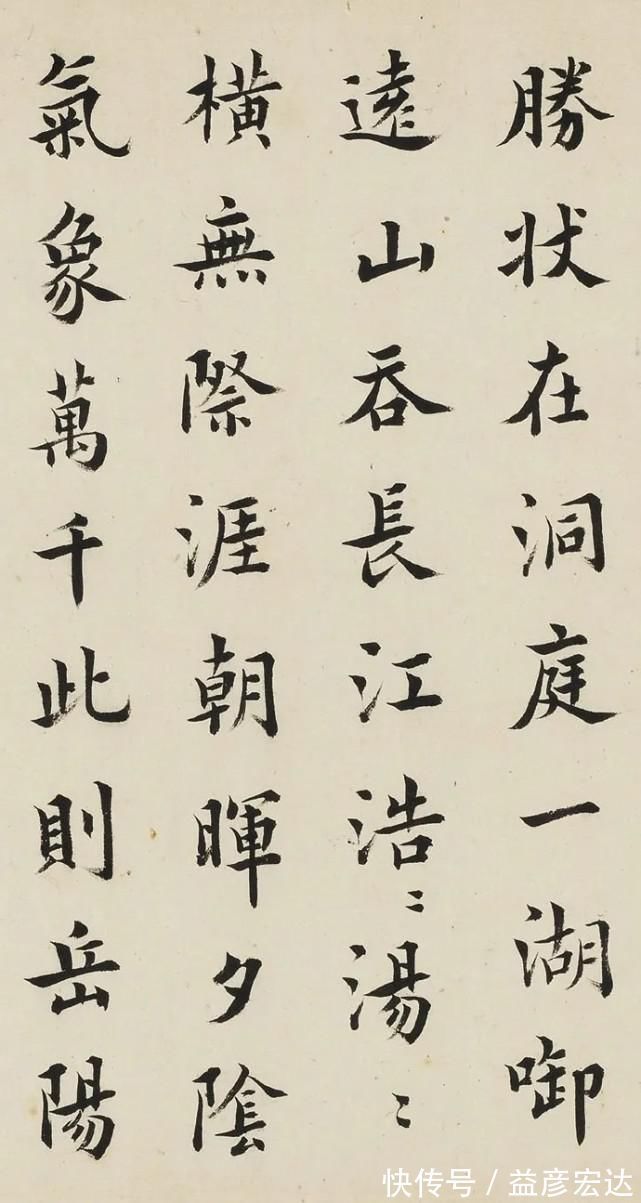 勝状在洞庭一湖啣
遠山吞長江浩〻湯〻
橫無際涯朝暉夕陰
氣象萬千此則岳陽
快传号 / 益彦宏达